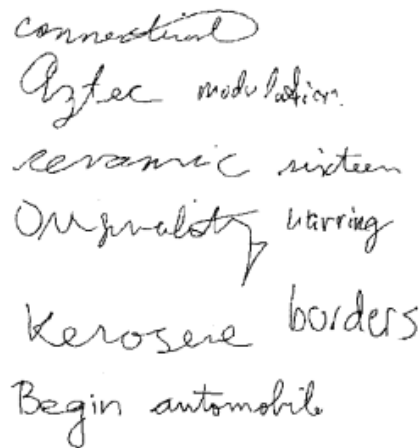 Aztec modulation.
ceramic sixteen
Originality warring
Kerosene borders
Begin automobile